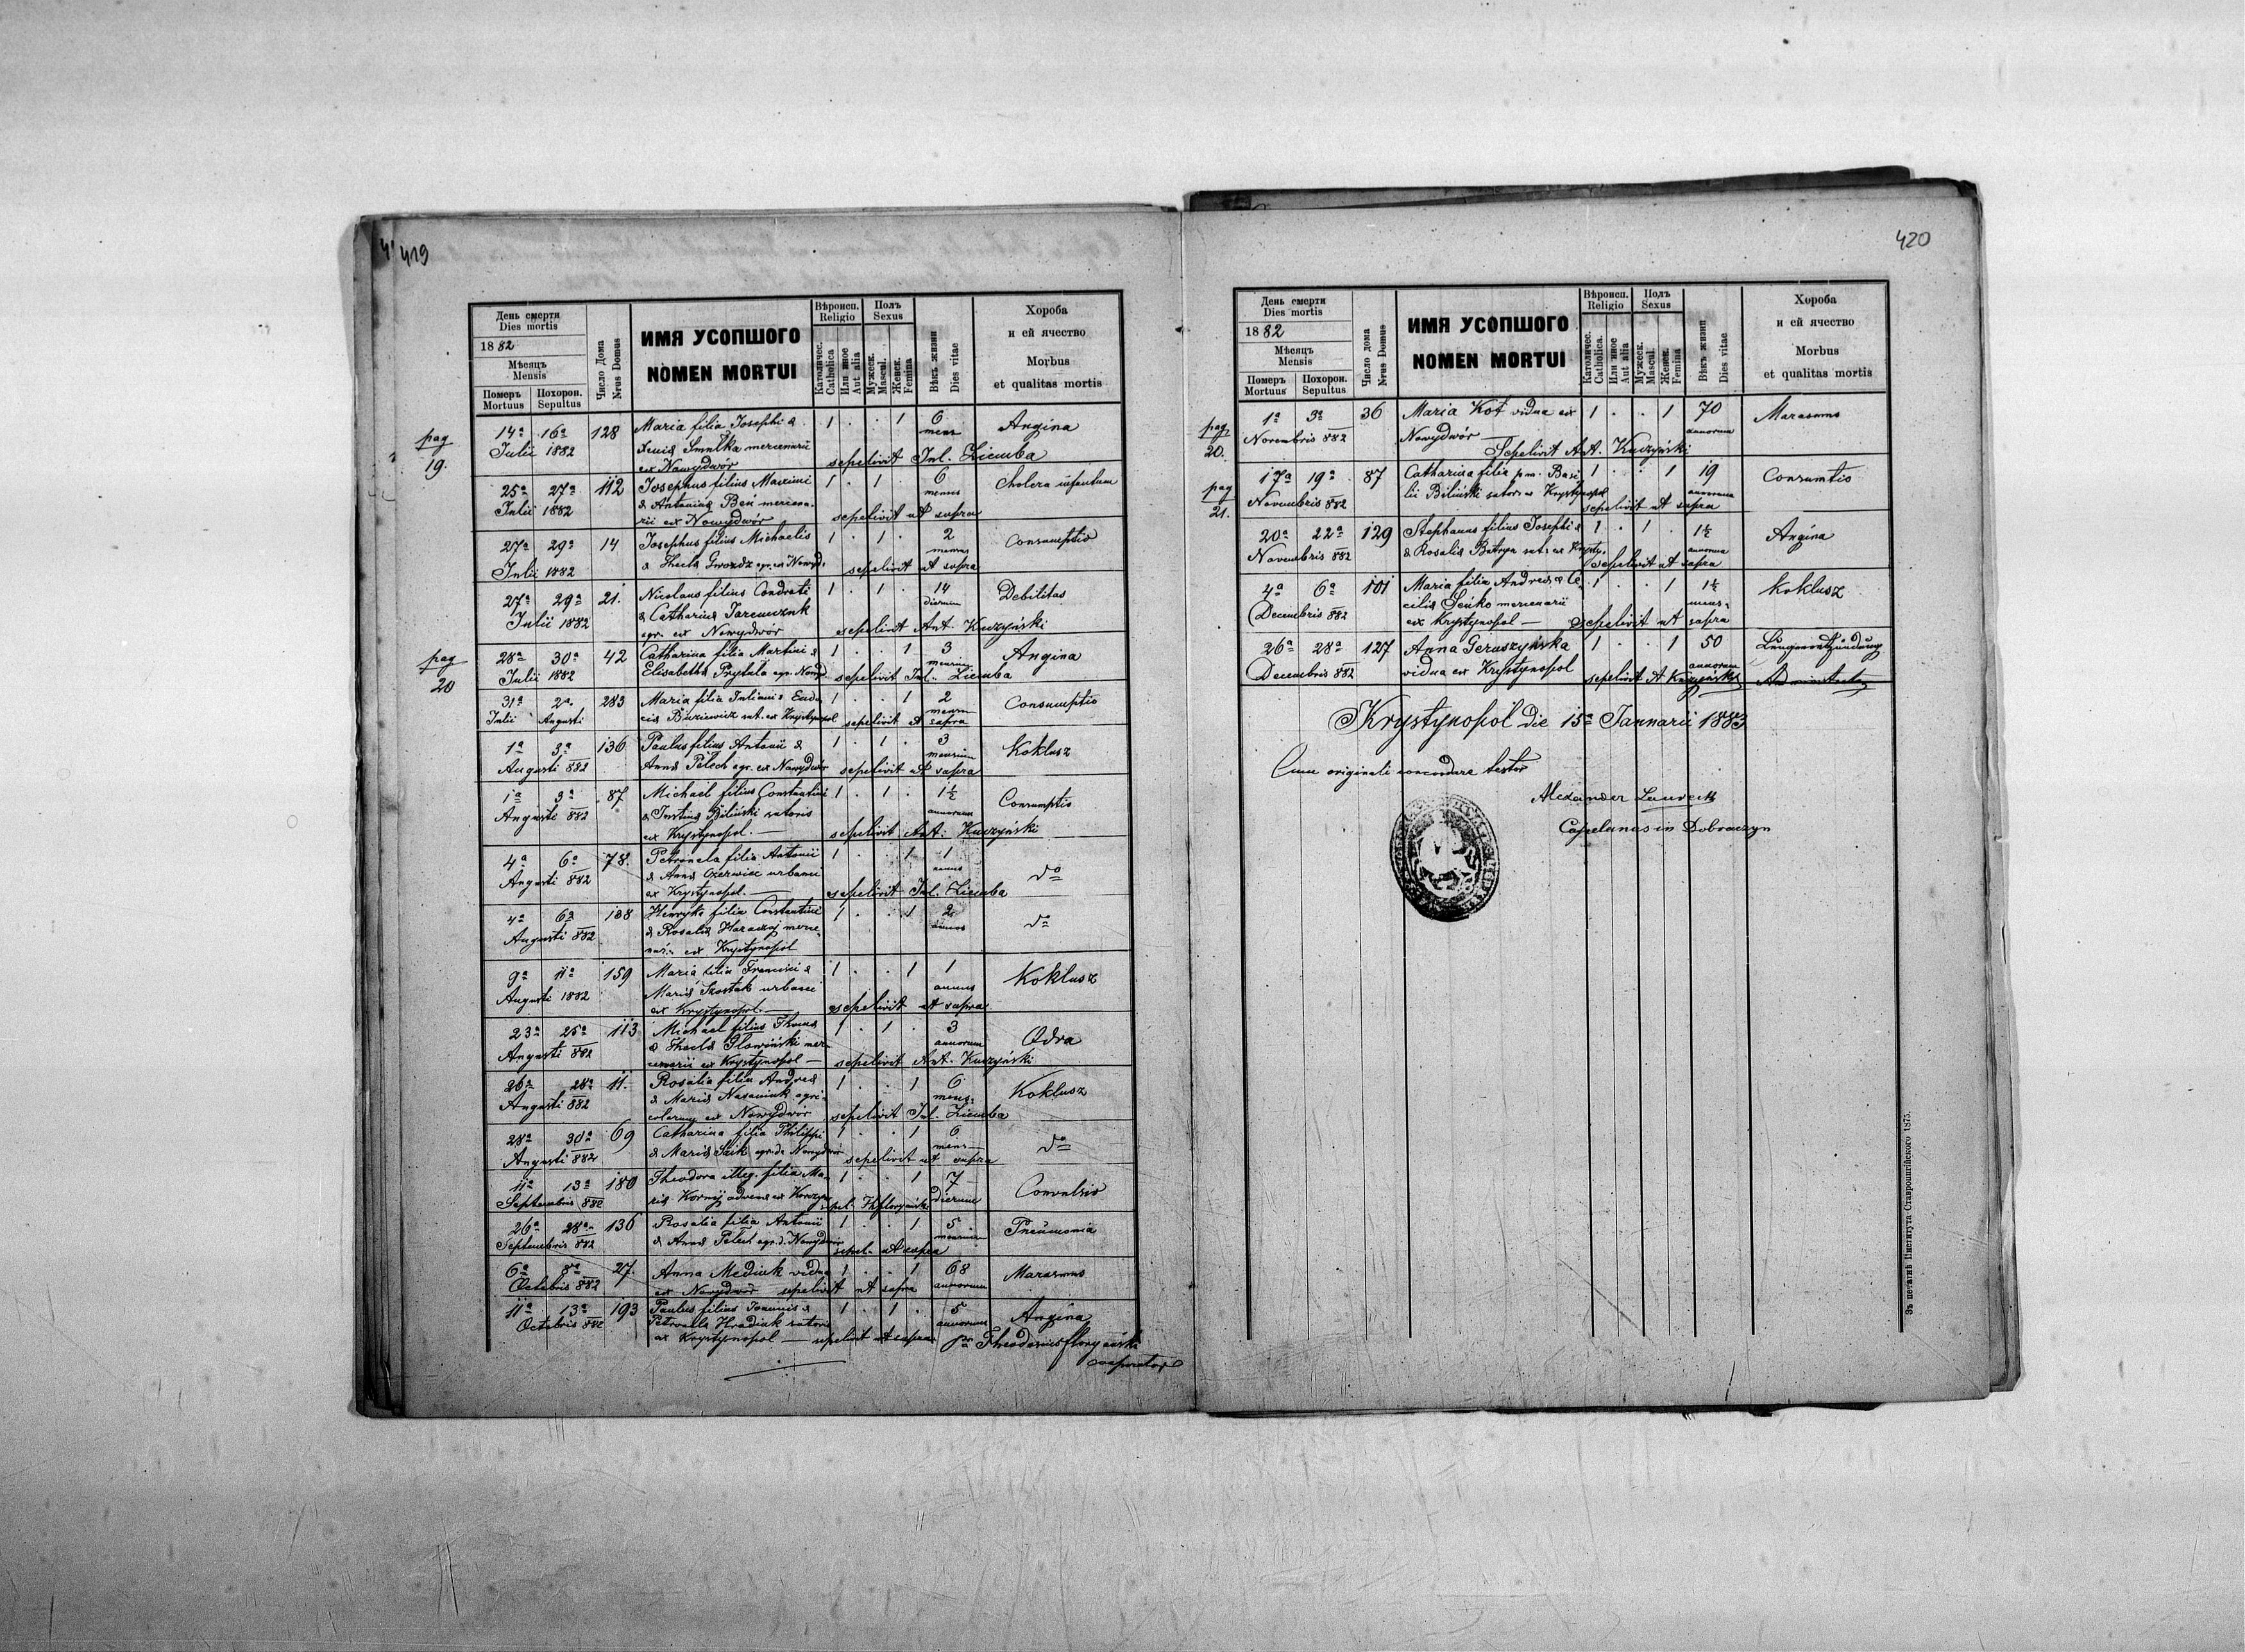 419
День смерти
Dies mortis
1882
Мѣсяць
Mensis
Померъ
Mortuus
Похорон.
Sepultus
Число Дома
Nrus Domus
ИМЯ УСОПШОГО
NOMEN MORTUI
Вѣроисп.
Religio
Католичес.
Catholica
Или иное
Aut alia
Полъ
Sexus
Мужеск.
Mascul.
Женск.
Femina
Вѣкъ жизни
Dies vitae
Хороба
и ей ячество
Morbus
et qualitas mortis
pag
19.
14a 16a 128 Maria filia Josephi & 1 . . 1 6 Angina
Julii 1882 mercenarii mens
ex Nowydwór sepelivit Jul. Ziemba
25a 27a 112 Josephus filius Maximi 1 . 1 . 6 Cholera infantum
Julii 1882 & Antonina Beń mercena- mens
rii ex Nowydwór sepelivit ut supra
27a 29a 14 Josephus filius Michaelis 1 . 1 . 2 Consumptio
Julii 1882 & Thecla Gwozdz agr. ex Nowyd. sepelivit ut supra
27a 29a 21. Nicolaus filius Condrati 1 . 1 . 14 Debilitas
Julii 1882 & Catharina Jaremczuk dierum
agr. ex Nowydwór sepelivit Ant. Kuczyński
pag
20
28a 30a 42 Catharina filia Martini & 1 . . 1 3 Angina
Julii 1882 Elisabetha Prytula agr. Nowyd. sepelivit Jul. Ziemba
31a 2a 283 Maria filia Juliani & Eudo- 1 . . 1 2 Consumptio
Julii Augusti cia sut. ex Krystynopol sepelivit ut supra
1a 3a 136 Paulus filius Antonii & 1 . 1 . 3 Koklusz
Augusti 882 Anna Pelech agr. ex Nowydwór mensium sepelivit ut supra
1a 3a 87 Michael filius Constantini 1 . 1 . 1½ Consumptio
Augusti 882 & Justina Biliński sutoris annorum
ex Krystynopol. — sepelivit Ant. Kuczyński
4a 6a 78. Petronela filia Antonii 1 . . 1 1 do
Augusti 882 & Anna Czerwiec urbani annus
ex Krystynopol. — sepelivit Jul. Ziemba
4a 6a 188 Henryka filia Constantini 1 . . 1 2 do
Augusti 882 & Rosalia merce- annos
nar. ex Krystynopol
9a 11a 159 Maria filia Francisci & 1 . . 1 1 Koklusz
Augusti 1882 Maria Szostak urbani annus
ex Krystynopol. — sepelivit ut supra
23a 25a 113 Michael filius Thoma 1 . 1 . 3 Odra
Augusti 882 & Thecla Głowiński mer- annorum
cenarii ex Krystynopol — sepelivit Ant. Kuczyński
26a 28a 11. Rosalia filia Andrea 1 . . 1 6 Koklusz
Augusti 882 & Maria agri- mens.
colarum ex Nowydwór sepelivit Jul. Ziemba
28a 30a 69 Catharina filia Philippi 1 . . 1 6 do
Augusti 882 & Maria Nowydwór mens sepelivit ut supra
11a 13a 180 Theodora illeg. filia Ma- 1 . . 1 7 Convulsio
Septembris 882 ria Kornij advena ex dierum
26a 28a 136 Rosalia filia Antonii 1 . . 1 5 Pneumonia
Septembris 882 & Anna Pelech agr. d. Nowydwór mensium sepel. ut supra
6a 8a 27. Anna Mediuk vidua 1 . . 1 68 Marasmus
Octobris 882 ex Nowydwór sepelivit ut supra annorum
11a 13a 193 Paulus filius Joannis & 1 . 1 . 5 Angina
Octobris 882 Petronella Hradiuk sutoris annorum
ex Krystynopol — sepelivit ut supra
cooperator
420
День смерти
Dies mortis
1882
Мѣсяць
Mensis
Померъ
Mortuus
Похорон.
Sepultus
Число дома
Nrus Domus
ИМЯ УСОПШОГО
NOMEN MORTUI
Вѣроисп.
Religio
Католичес.
Catholica.
Или иное
Aut alia
Полъ
Sexus
Мужеск.
Mascul.
Женск.
Femina
Вѣкъ жизни
Dies vitae
Хороба
и ей ячество
Morbus
et qualitas mortis
pag
20.
1a 3a 36 Maria Kot vidua ex 1 . . 1 70 Marasmus
Novembris 882 Nowydwór — annorum
Sepelivit Ant. Kuczyński
pag
21.
17a 19a 87 Catharina filia p.m. Basi- 1 . . 1 19 Consumtio
Novembris 882 lii Biliński sutoris ex Krystynopol annorum
sepelivit ut supra
20a 22a 129 Stephanus filius Josephi & 1 . 1 . 1½ Angina
Novembris 882 & Rosalia sut. ex Krysty. annorum
sepelivit ut supra
4a 6a 101 Maria filia Andrea & Ce- 1 . . 1 1½ Koklusz
Decembris 882 cilia Seńko mercenarii mens.
ex Krystynopol — sepelivit ut supra
26a 28a 127 Anna Geruszyńska 1 . . 1 50 Lungenentzündung
Decembris 882 vidua ex Krystynopol annorum
sepelivit A Kuczyński
Krystynopol die 15a Januarii 1883
Cum originali concordare testor
Alexander
Capelanus in Dobraczyn
Зъ печатнѣ Института Ставропигійского 1875.